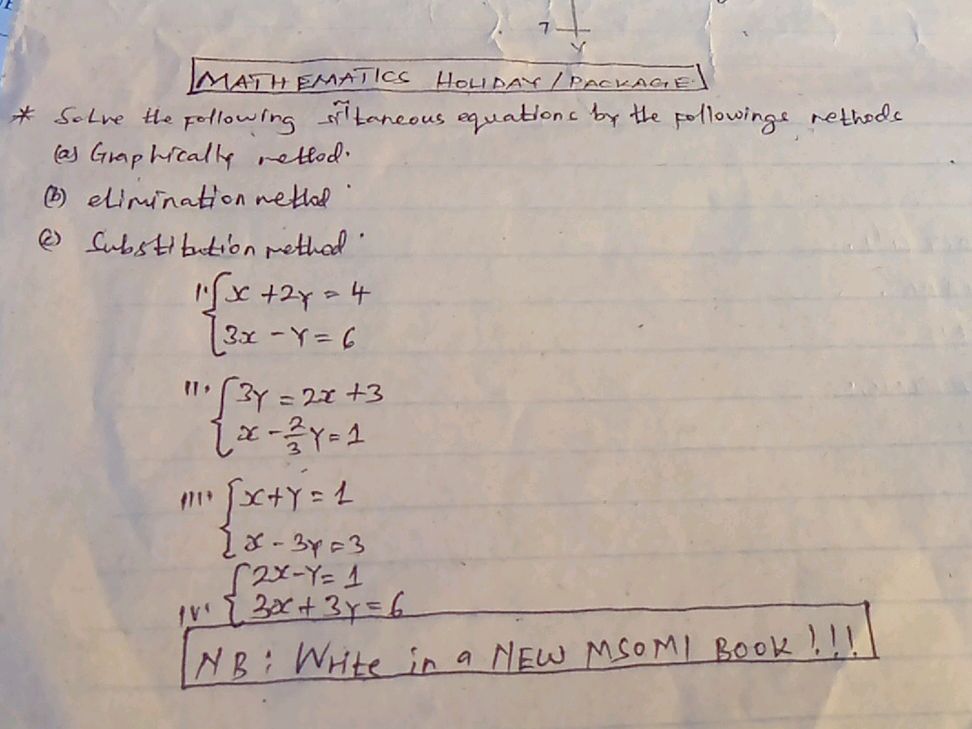 7
Y
MATHEMATICS HOLIDAY / PACKAGE
* Solve the following taneous equations by the followings methods
(a) Graphically method.
(b) elimination method
(c) Substitution method
i. x + 2y = 4
3x - y = 6
ii. 3y = 2x + 3
x - 2/3 y = 1
iii. x + y = 1
x - 3y = 3
2x - y = 1
iv. 3x + 3y = 6
NB: Write in a NEW MSOMI BOOK !!!